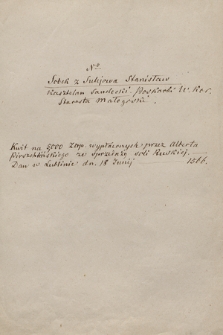 No
Sobek z Sulejowa Stanisław
Kasztelan Sandecki Poskarbi W. Kor.
Starosta Małogoski.
Kwit na 2000 złp. wypłaconych przez Alberta
ze sprzedaży soli Ruskiej.
Dan w Lublinie dn. 18 Junij 1566.